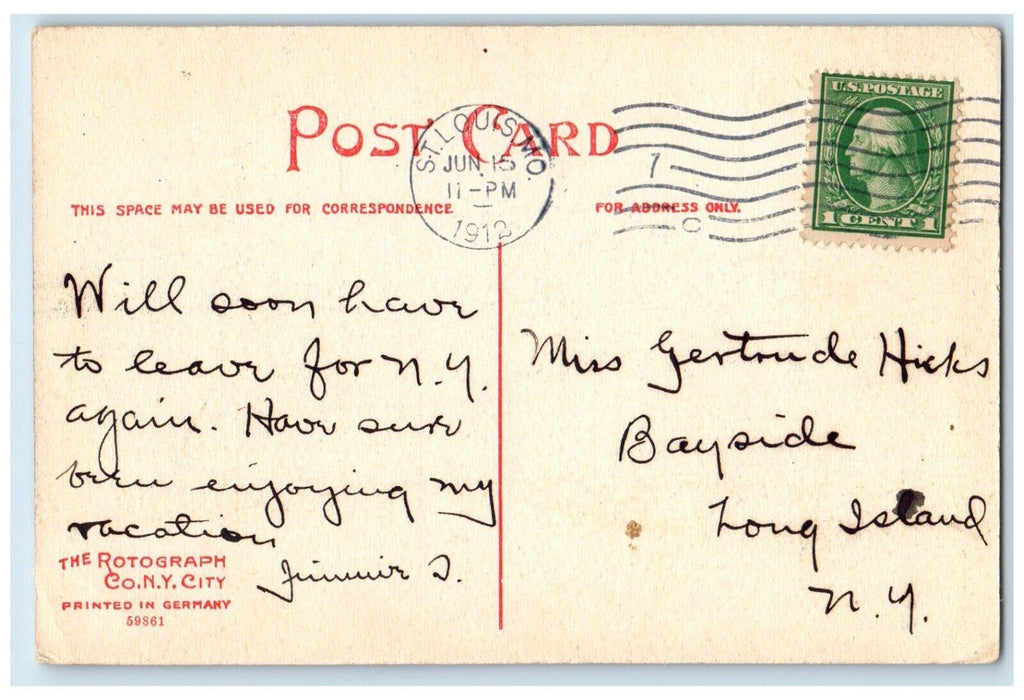 POST CARD
ST. LOUIS, MO.
JUN 15
11-PM
1912
7
C
U.S. POSTAGE
1 CENT 1
THIS SPACE MAY BE USED FOR CORRESPONDENCE
FOR ADDRESS ONLY.
Will soon have
to leave for N.Y.
again. Have sure
been enjoying my
vacation
Jimmie D.
Miss Gertrude Hicks
Bayside
Long Island
N.Y.
THE ROTOGRAPH
CO. N.Y. CITY
PRINTED IN GERMANY
59861